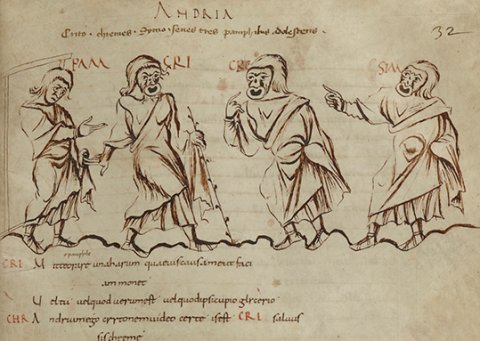 ANDRIA
Crito · chremes · Symo · senes tres pamphilus adolescens ·
32
PAM CRI CRE SIM
pamphile
CRI M mitte orare una harum quaevis causa me ut faci
am monet
V el tu vel quod verum est vel quod ipsi cupio glicerio
CHR A ndrium ego critonem video certe is est CRI salvus
sis chreme